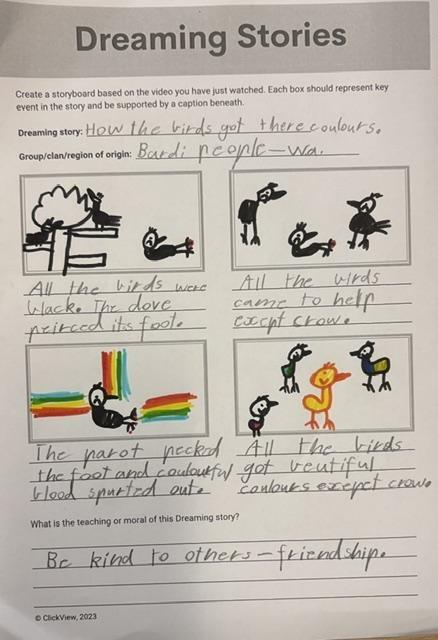 Dreaming Stories
Create a storyboard based on the video you have just watched. Each box should represent key
event in the story and be supported by a caption beneath.
Dreaming story: How the birds got there coulours.
Group/clan/region of origin: Bardi people - Wa.
All the birds were
black. The dove
peirced its foot.
All the birds
came to help
except crow.
The parot pecked
the foot and coulourful
blood spurted out.
All the birds
got beutiful
coulours exepet crow.
What is the teaching or moral of this Dreaming story?
Be kind to others - friendship.
© ClickView, 2023